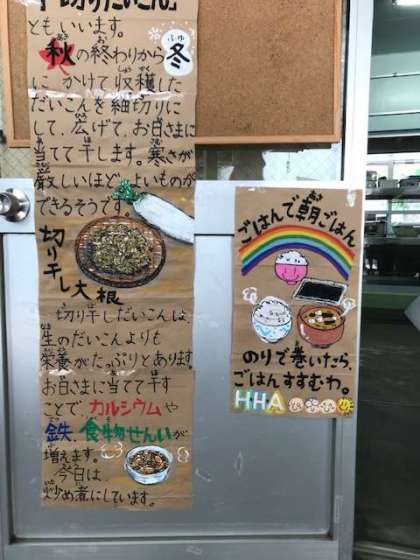 「切りだいこん」
ともいいます。
秋の終わりから冬
に、かけて収穫した
だいこんを細切りに
して、広げて、お日さまに
当てて干します。寒さが
厳しいほど、よいものが
できるそうです。
切り干し大根
切り干しだいこんは、
生のだいこんよりも
栄養がたっぷりとあります。
お日さまに当てて干す
ことで、カルシウムや
鉄、食物せんいが
増えます。
今日は、
炒め煮にしています。
ごはんで朝ごはん
のりで巻いたら、
ごはんすすむわ。
HHA